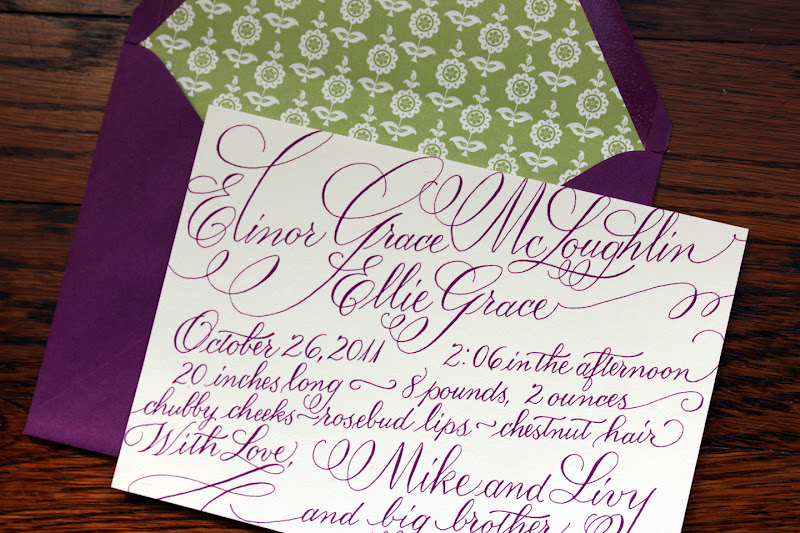 Elinor Grace McLoughlin
Ellie Grace
October 26, 2011 2:06 in the afternoon
20 inches long ~ 8 pounds, 2 ounces
chubby cheeks ~ rosebud lips ~ chestnut hair
With Love,
Mike and Livy
and big brother